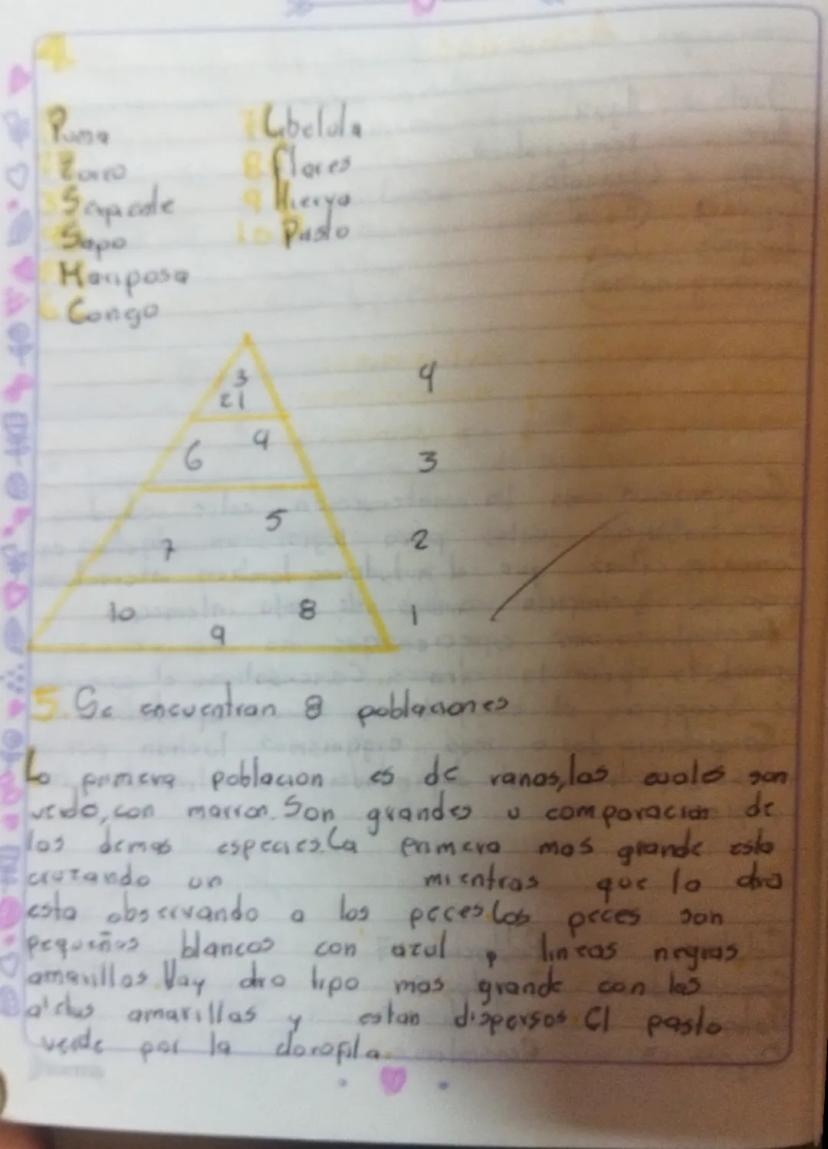 4
Puma
Zorro
Serpiente
Sapo
Mariposa
6 Congo
7 Libelula
8 flores
9 Hierva
10 Pasto
3
21
6 4
7 5
10 9 8
4
3
2
1
5. Se encuentran 8 poblaciones
La primera poblacion es de ranas, las cuales son
verde, con marron. Son grandes a comparacion de
las demas especies. La primera mas grande esta
cruzando un mientras que la otra
esta observando a los peces. Los peces son
pequeños blancos con azul y lineas negras
amarillas. Hay otro tipo mas grande con las
aletas amarillas y estan dispersos. El pasto
verde por la clorofila.